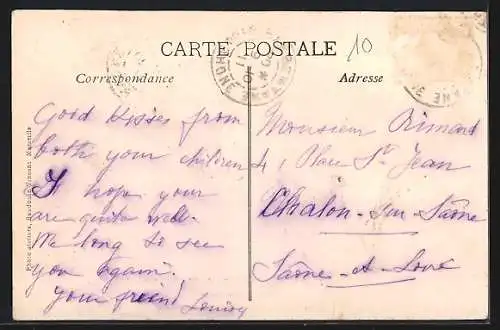 CARTE POSTALE
10
Correspondance
Adresse
Good kisses from
both your children
I hope your
are quite well.
We long to see
you again.
Your friend
Monsieur Rimard
4, Place St Jean
Chalon-sur-Saône
Saône-et-Loire